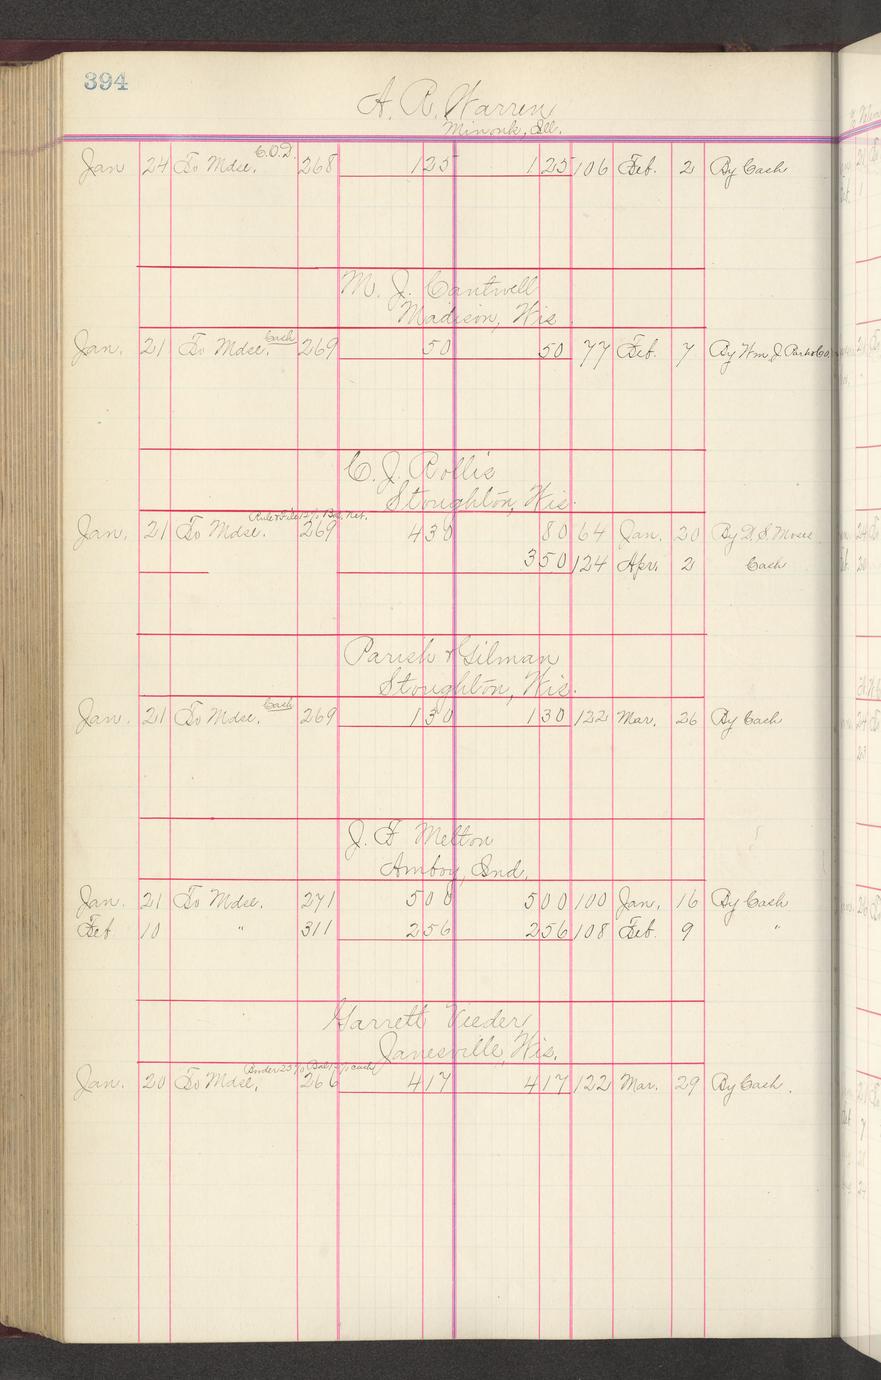 394
A. R. Warren
Minonk, Ill.
Jan 24 To Mdse. C.O.D. 268 125 125 106 Feb. 2 By Cash
M. J. Cantwell
Madison, Wis.
Jan. 21 To Mdse. Cash 269 50 50 77 Feb. 7 By Wm. J. Park & Co.
C. J. Rollis
Stoughton, Wis.
Jan. 21 To Mdse. 269 430 80 64 Jan. 20 By D. S. Moses
350 124 Apr. 2 Cash
Parish & Gilman
Stoughton, Wis.
Jan. 21 To Mdse. Cash 269 130 130 122 Mar. 26 By Cash
J. F. Melton
Amboy, Ind.
Jan. 21 To Mdse. 271 500 500 100 Jan. 16 By Cash
Feb. 10 " 311 256 256 108 Feb. 9 "
Garrett Veeder,
Janesville, Wis.
Jan. 20 To Mdse. 266 417 417 122 Mar. 29 By Cash.